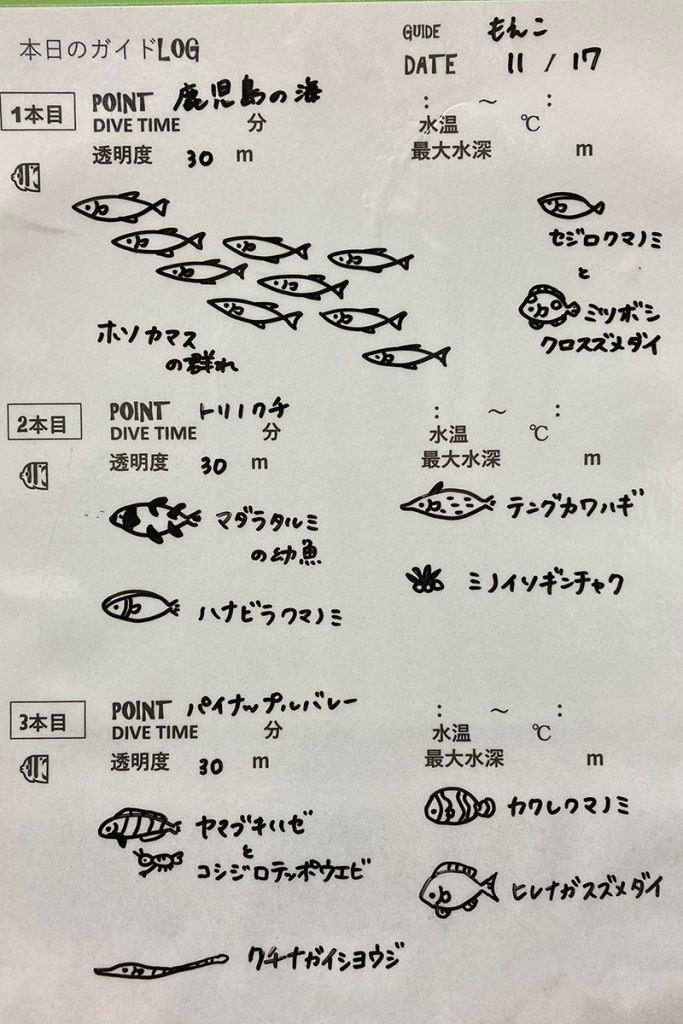 本日のガイドLOG
GUIDE もんこ
DATE 11 / 17
1本目
POINT 鹿児島の海
: ～ :
DIVE TIME 分
水温 ℃
透明度 30 m
最大水深 m
セジロクマノミ
と
ミツボシ
クロスズメダイ
ホソカマス
の群れ
2本目
POINT トリノクチ
: ～ :
DIVE TIME 分
水温 ℃
透明度 30 m
最大水深 m
マダラタルミ
の幼魚
テングカワハギ
ハナビラクマノミ
ミノイソギンチャク
3本目
POINT パイナップルバレー
: ～ :
DIVE TIME 分
水温 ℃
透明度 30 m
最大水深 m
ヤマブキハゼ
と
コシジロテッポウエビ
カクレクマノミ
ヒレナガスズメダイ
クチナガイショウジ